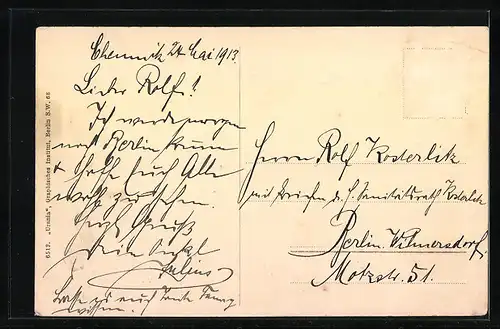 Chemnitz 24 Mai 1913
Lieber Rolf!
Ich werde morgen
nach Berlin kommen
+ hoffe Euch Alle
wohl zu sehen.
Herzl. Gruß
Dein Onkel
Julius
Lasse es auch Tante Fanny
wissen.
Herrn Rolf Kosterlitz
mit Briefen d. H. Sanitätsrath Kosterlitz
Berlin Wilmersdorf
Motzstr. 51.
6512. „Urania“, Graphisches Institut, Berlin S.W. 68